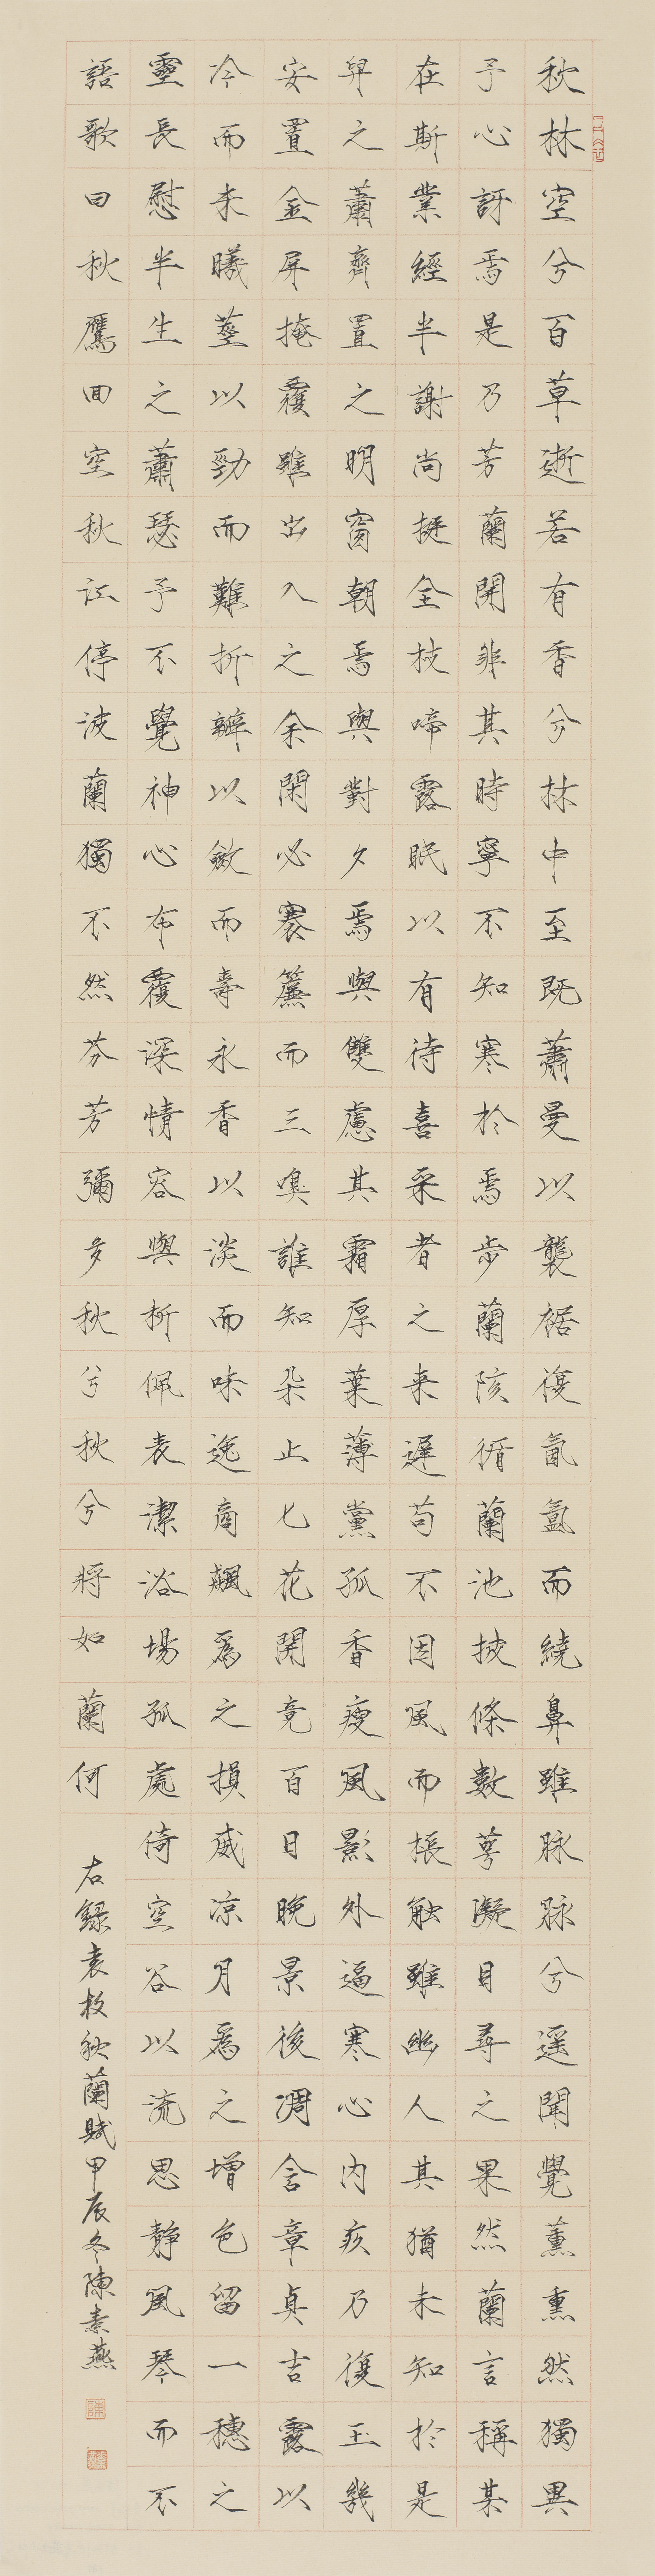 秋林空兮百草逝若有香兮林中至既蕭曼以襲裾復氤氳而繞鼻雖脉脉兮遥聞覺薰薰然獨異
予心訝焉是乃芳蘭開非其時寧不知寒於焉步蘭陔循蘭池披條數萼凝目尋之果然蘭言稱某
在斯業經半謝尚挺全枝啼露眠以有待喜采者之来遲苟不因風而棖触雖幽人其猶未知於是
舁之蕭齊置之明窗朝焉與對夕焉與雙慮其霜厚葉薄黨孤香瘦風影外逼寒心内疚乃復玉几
安置金屏掩覆雖出入之余閑必褰簾而三嗅誰知朵止七花開竟百日晚景後凋含章貞吉露以
冷而未晞莖以勁而難折瓣以斂而壽永香以淡而味逸商飆爲之損威凉月爲之增色留一穗之
靈長慰半生之蕭瑟予不覺神心布覆深情容與析佩表潔浴場孤處倚空谷以流思靜風琴而不
語歌曰秋鷹回空秋江停波蘭獨不然芬芳彌多秋兮秋兮將如蘭何
右錄袁枚秋蘭賦甲辰冬陳素燕